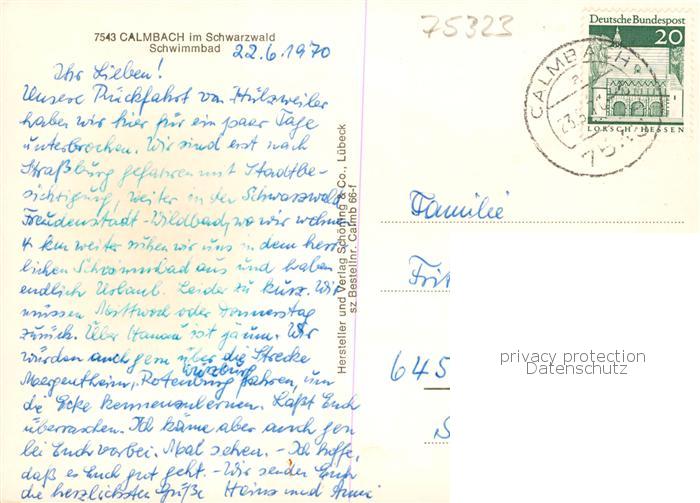 7543 CALMBACH im Schwarzwald
Schwimmbad
22.6.1970
Ihr Lieben!
Unsere Rückfahrt von Hülzweiler
haben wir hier für ein paar Tage
unterbrochen. Wir sind erst nach
Straßburg gefahren mit Stadtbe-
sichtigung, weiter in den Schwarzwald
Freudenstadt-Wildbad, wo wir wohnen
4 km weiter ruhen wir uns in dem herr-
lichen Schwimmbad aus und haben
endlich Urlaub. Leider zu kurz. Wir
müssen Mittwoch oder Donnerstag
zurück. Über Hanau ist ja um. Wir
würden auch gern über die Strecke
Würzburg
Mergentheim, Rotenburg fahren, um
die Ecke kennenzulernen. Laßt Euch
überraschen. Ich käme aber auch gern
bei Euch vorbei. Mal sehen. - Ich hoffe,
daß es Euch gut geht. - Wir senden Euch
die herzlichsten Grüße Heins und Anni
Hersteller und Verlag Schöning & Co., Lübeck
sz Bestellnr. Calmb 66-f
75323
Deutsche Bundespost
20
LORSCH/HESSEN
CALMBACH
Familie
645
privacy protection
Datenschutz